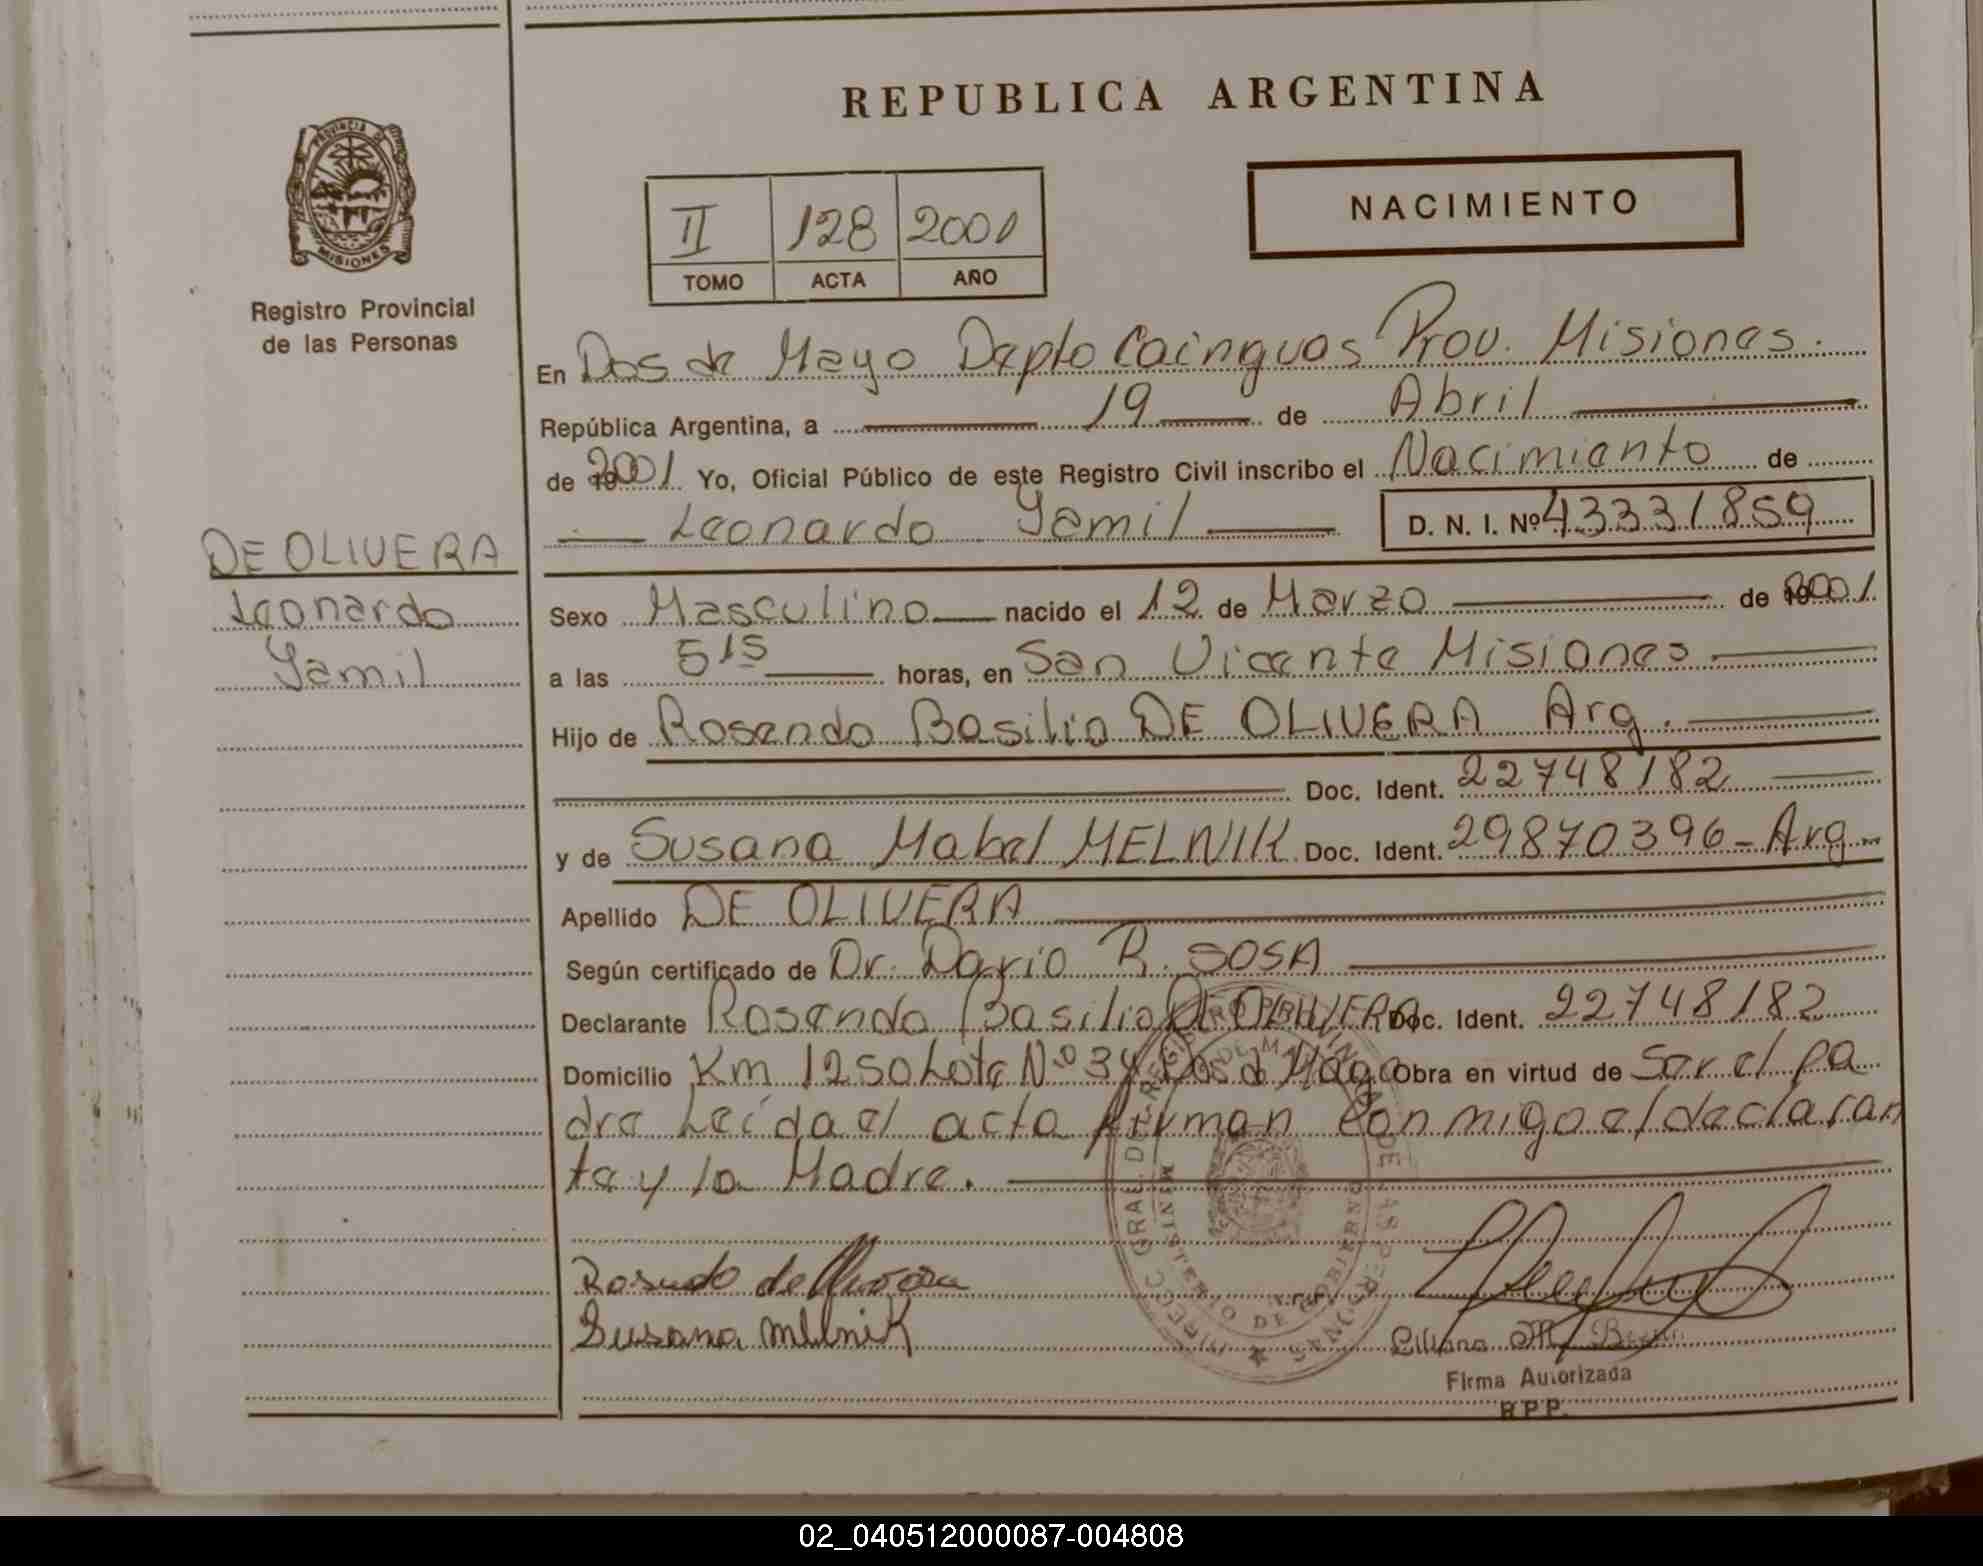 REPUBLICA ARGENTINA
PROVINCIA DE
MISIONES
Registro Provincial
de las Personas
NACIMIENTO
II 128 2001
TOMO ACTA AÑO
En Dos de Mayo Depto Cainguas Prov. Misiones.
República Argentina, a 19 de Abril
de 2001 Yo, Oficial Público de este Registro Civil inscribo el Nacimiento de
Leonardo Yamil D. N. I. Nº 43331859
DE OLIVERA
Leonardo
Yamil
Sexo Masculino nacido el 12 de Marzo de 2001
a las 5 15 horas, en San Vicente Misiones
Hijo de Rosendo Basilio DE OLIVERA Arg.
Doc. Ident. 22748182
y de Susana Mabel MELNIK Doc. Ident. 29870396 - Arg
Apellido DE OLIVERA
Según certificado de Dr. Dario R. SOSA
Declarante Rosendo Basilio DE OLIVERA Doc. Ident. 22748182
Domicilio Km 1250 Lote Nº 34 Dos d Mayo Obra en virtud de Ser el pa
dre Leída el acta firman conmigo el declaran
te y la Madre.
Rosendo de Olivera
Susana Melnik
MINISTERIO DE GOBIERNO
Liliana M.
Firma Autorizada
R.P.P.
02_040512000087-004808